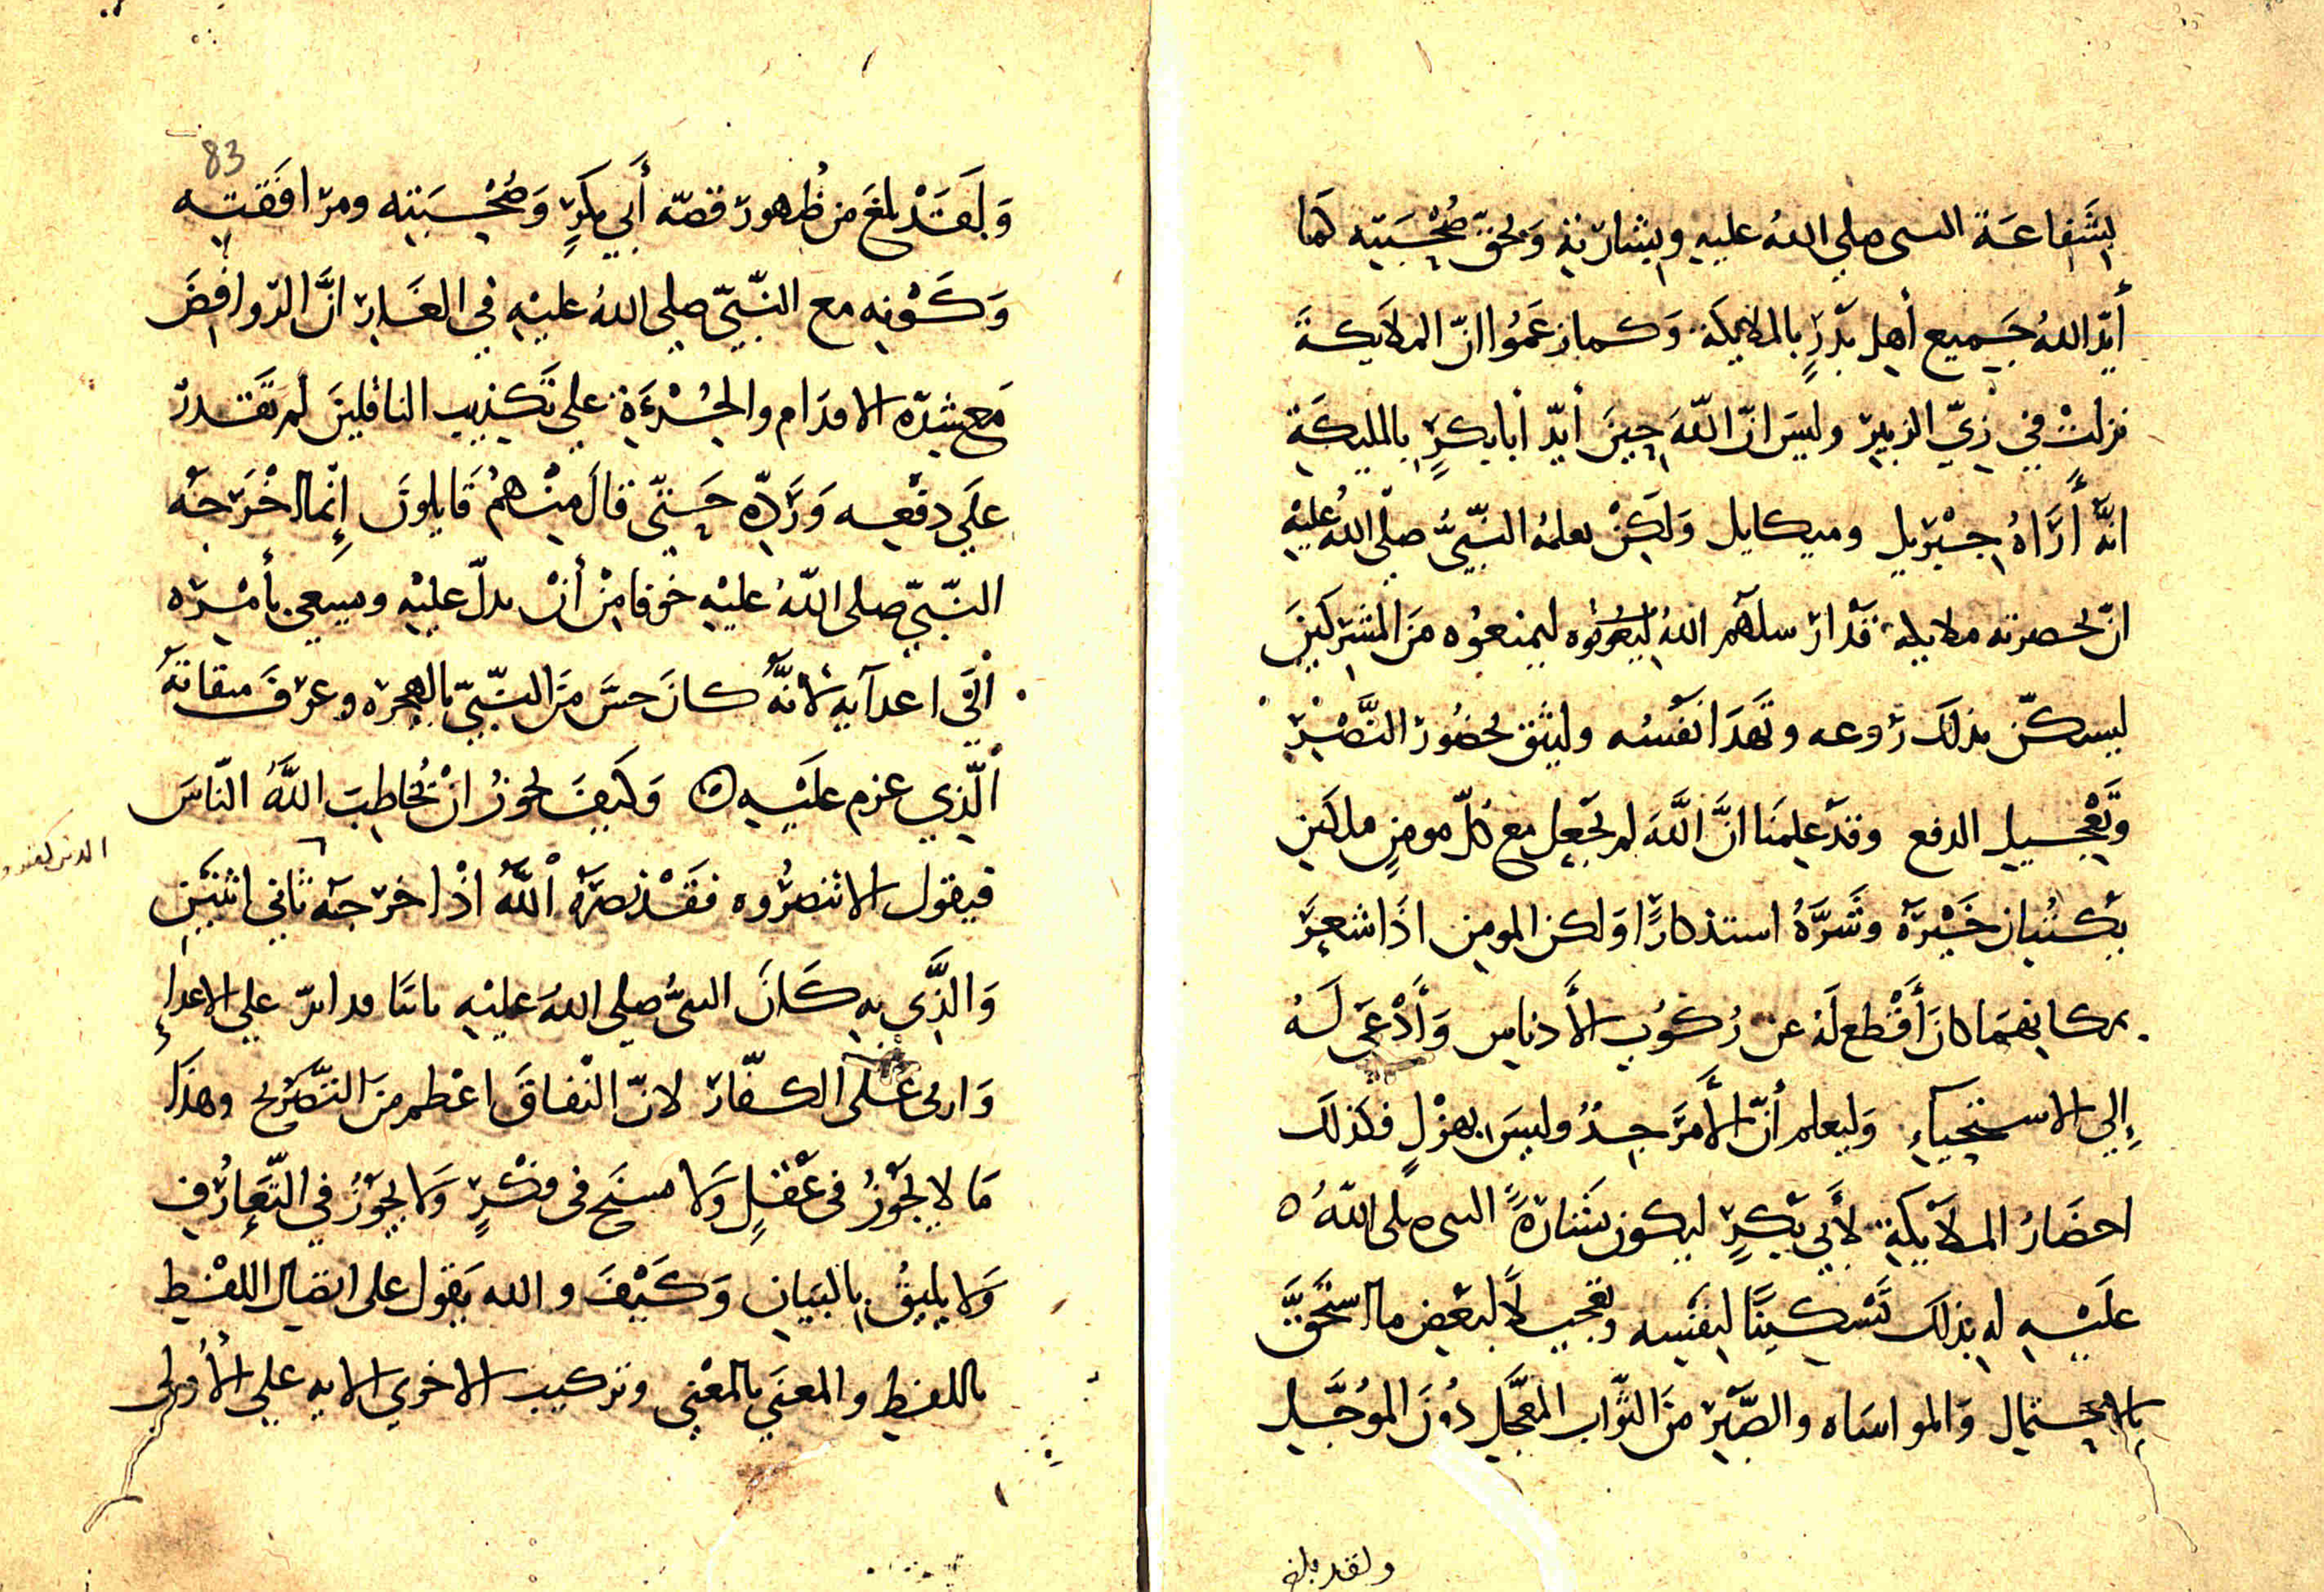 بِشَفاعَة النبي صلي اللهُ عليهِ وبِشارَتهِ وَبحقّ صُحْبَتِه كَما
أيّد اللهُ جَميع أهل بَدْرٍ بالملائِكَة وَكما زعَمُوا انّ الملايكةَ
نزلتْ في زِيّ الزبير وليسَ انّ اللّهَ حِينَ أيّد أبا بكرٍ بالمليكَةِ
انّهُ أرَاهُ جِبْريل وميكايل وَلَكِنْ يعلمهُ النّبيُّ صلّى اللهُ عليْهِ
انّ بحضرته ملايكة قَدْ ارسلَهم اللهُ ليمنعوُه منَ المشركينَ
ليسكّن بذلكَ رَوعه وتَهدَا نَفْسُه وليثق بحضُور النَّصْرِ
وتَعْجيل الدفع وقدْ عَلِمنَا انَّ اللّهَ لم يَجْعل مع كلّ مومنٍ ملكَين
يكتُبان خَيْرَهُ وَشَرَّهُ استذكارًا وَلكن المومن اذَا شعرَ
بمكانهمَا كانَ أَقْطع لَه عن رُكوُب الأَدناس وَأَدْعَى لَهُ
إلي الاستحياءِ وَليعلم أنّ الأَمرَ جِدٌ وليسَ بهزْلٍ فكَذلكَ
احضَارُ الملاَيكَةِ لأَبي بَكرٍ ليكون بشَارَةُ النبي صلى اللّهُ
علَيْهِ له بذلكَ تَسْكينًا لِنفسِه وتعجيلاً لبَعْض ما استَحقَّ
بالاحتمال وَالمواسَاه والصَّبْر منَ الثّواب المعَجَّل دُونَ الموُجَّل
ولقد بلغ
83
وَلَقَدْ بلغَ من ظُهور قصّه أَبي بكرٍ وَصُحْبَتِه ومرافَقتِه
وَكَوْنِه مع النّبيّ صلي اللهُ عليْهِ في الغَارِ انَّ الرّوافِضَ
مَع شِدّه الاقدَام والجُرْءَةِ علي تَكذِيب الناقلينَ لم تَقدرْ
علَي دفْعِه وَرَدّهِ حَتّي قالَ مِنْهمْ قَايلونَ إنّما اخْرَجهُ
النّبيّ صلي اللّهُ عليْهِ خَوفا مِنْ أنْ يدلّ عليْهِ ويسعي بأمْرِه
الَى اعدآيهِ لأنّهُ كانَ حسَّ منَ النّبيّ بالهِجره وعرفَ ميقاتَهُ
الّذِي عزم علَيْهِ ه وَكَيفَ يَجوزُ انْ يُخاطِبَ اللَّهُ النّاسَ
الذين كفروا
فيقول الا تنصرُوه فقَدْ نصرَهُ اللَّهُ اذْ اخرجهُ ثاني اثنَيْنِ
وَالذَي بهِ كَانَ النبيُّ صلي اللهُ عليْهِ علي الاعداءِ
وَاربى عَلَى الكفّار لانّ النْفاقَ اعْظم منَ التَّصْريح وهذَا
مَا لا يَجُوزُ في عَقْلٍ وَلا يسنَح في فِكْرٍ وَلا يجوْزُ في التّعَارُف
وَلا يليقُ بالبَيان وَكَيْفَ والله يَقول على اتصال اللفْظِ
باللفظِ والمعنَي بالمعْني وتركيب الاخري الايه علي الأُولَى